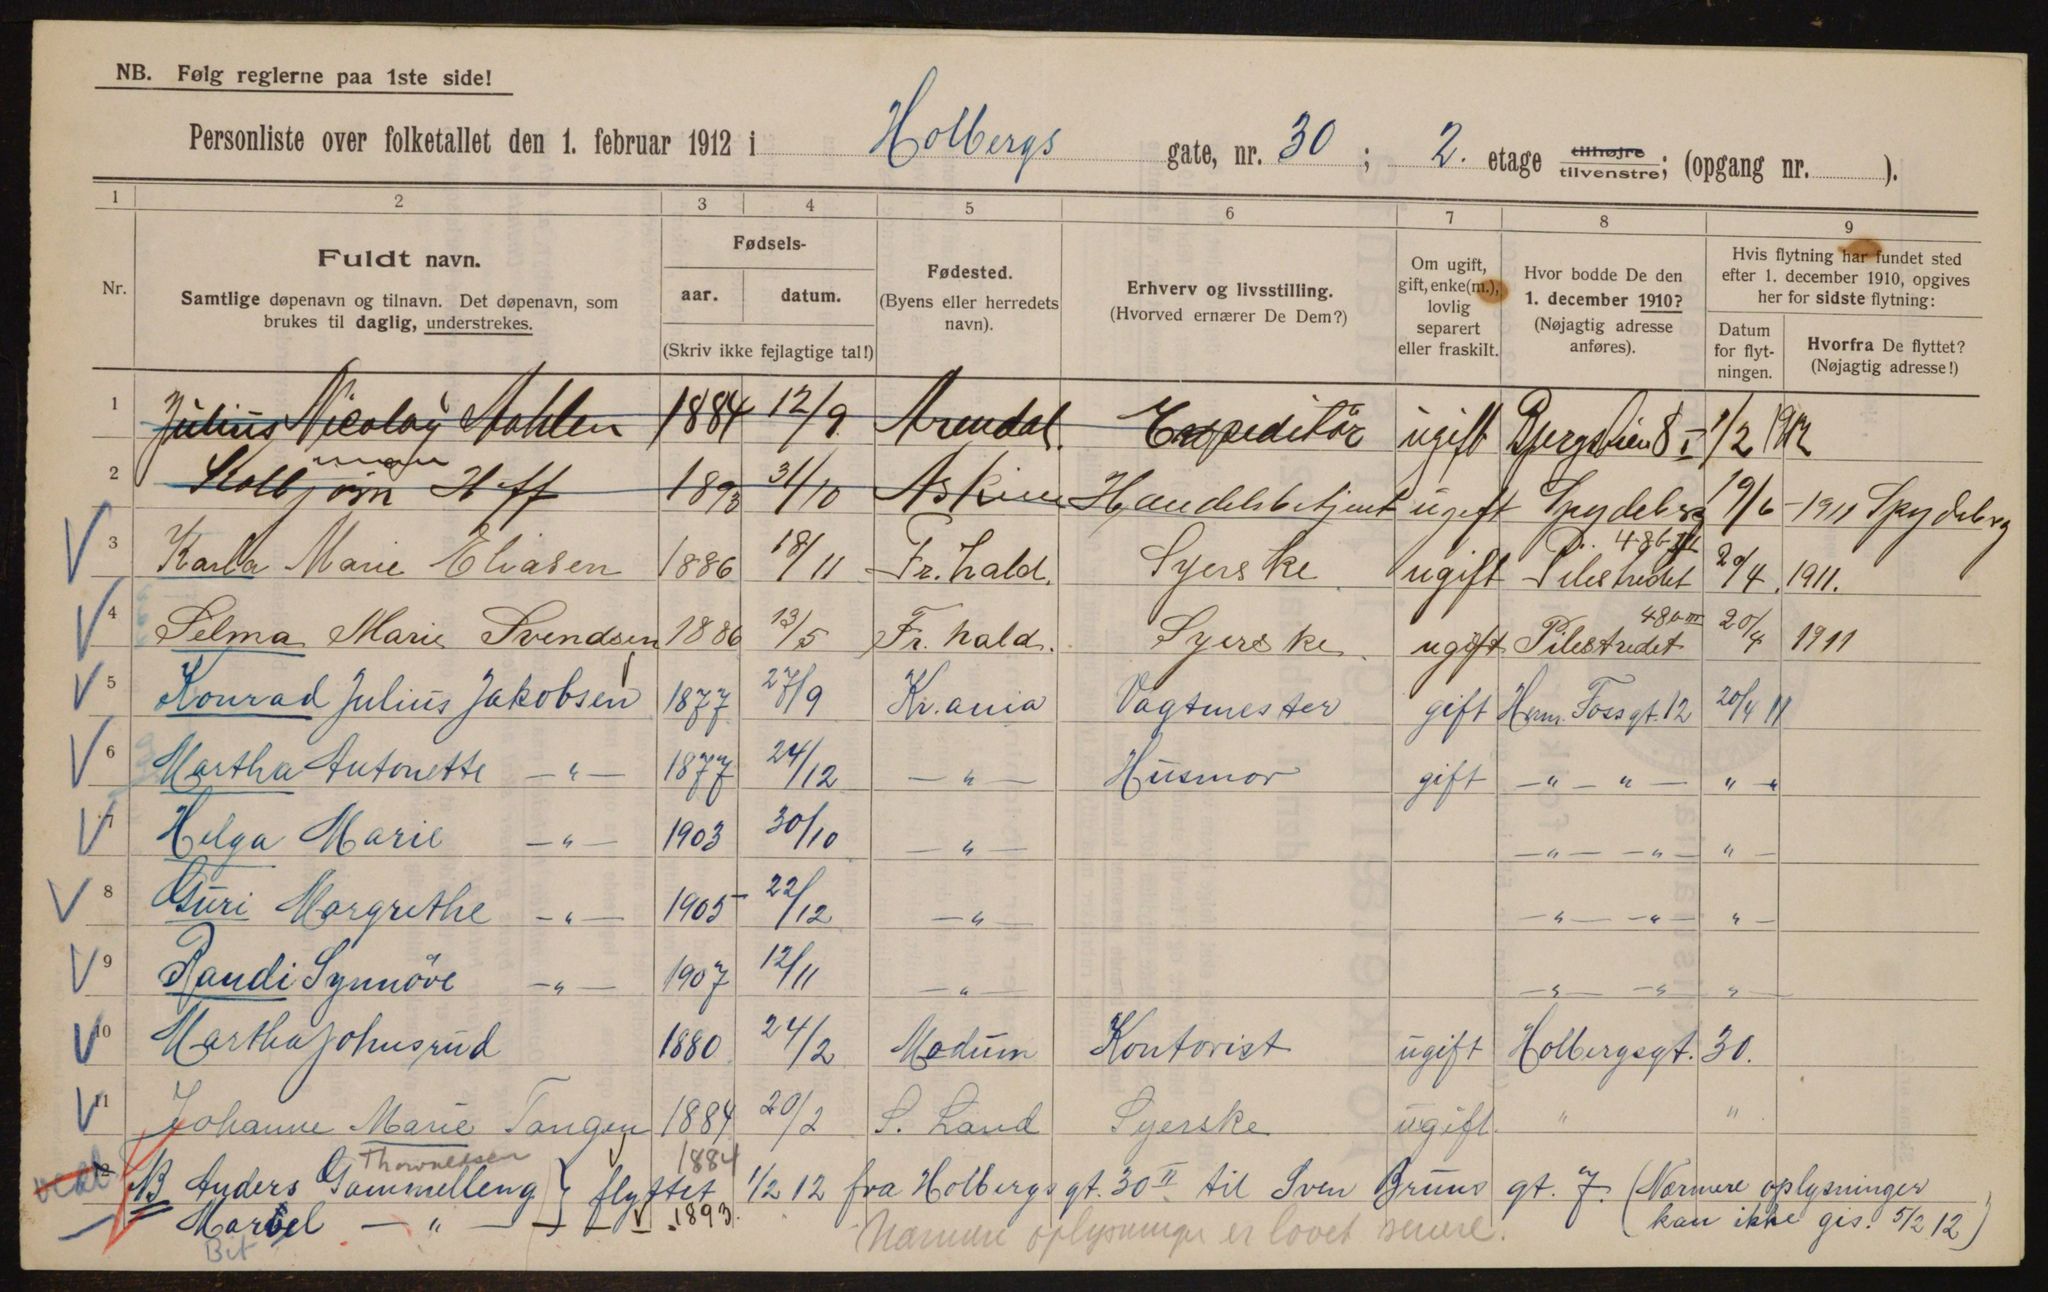 NB. Følg reglerne paa 1ste side!
Personliste over folketallet den 1. februar 1912 i Holbergs gate, nr. 30 ; 2. etage tilhøjre tilvenstre; (opgang nr. ).
1 2 3 4 5 6 7 8 9
Nr.
Fuldt navn.
Samtlige døpenavn og tilnavn. Det døpenavn, som
brukes til daglig, understrekes.
Fødsels-
aar. datum.
(Skriv ikke fejlagtige tal!)
Fødested.
(Byens eller herredets
navn).
Erhverv og livsstilling.
(Hvorved ernærer De Dem?)
Om ugift,
gift, enke(m.),
lovlig
separert
eller fraskilt.
Hvor bodde De den
1. december 1910?
(Nøjagtig adresse
anføres).
Hvis flytning har fundet sted
efter 1. december 1910, opgives
her for sidste flytning:
Datum
for flyt-
ningen.
Hvorfra De flyttet?
(Nøjagtig adresse!)
1 Julius Nicolay 1884 12/9 Arendal. Expeditör ugift 1/2 1912
2 Kolbjörn Hoff 1893 31/10 Askim Handelsbetjent ugift Spydeberg 19/6 - 1911 Spydeberg
3 Karla Marie Eliasen 1886 18/11 Fr. hald. Syerske ugift Pilestredet 20/4 1911.
4 Selma Marie Svendsen 1886 13/5 Fr. hald. Syerske ugift Pilestredet 20/4 1911
5 Konrad Julius Jakobsen 1877 27/9 Kr.ania Vagtmester gift Herm. Fossgt. 12 20/4 11
6 Martha Antonette — " — 1877 24/12 — " — Husmor gift — " — " — " "
7 Helga Marie — " — 1903 30/10 — " — — " — — " — " —
8 Guri Margrethe — " — 1905 22/12 — " — — " — — " — " —
9 Randi Synnöve — " — 1907 12/11 — " — — " — — " — " —
10 Martha Johnsrud 1880 24/2 Modum Kontorist ugift Holbergsgt. 30.
11 Johanne Marie Tangen 1884 20/2 S. Land Syerske ugift. " "
Thorvaldsen 1884
12 NB Anders Gammelleng } flyttet 1/2 12 fra Holbergsgt. 30 II til Sven Bruns gt. 7. (Nærmere oplysninger
— " — 1893. kan ikke gis. 5/2 12)
Nærmere oplysninger er lovet senere.